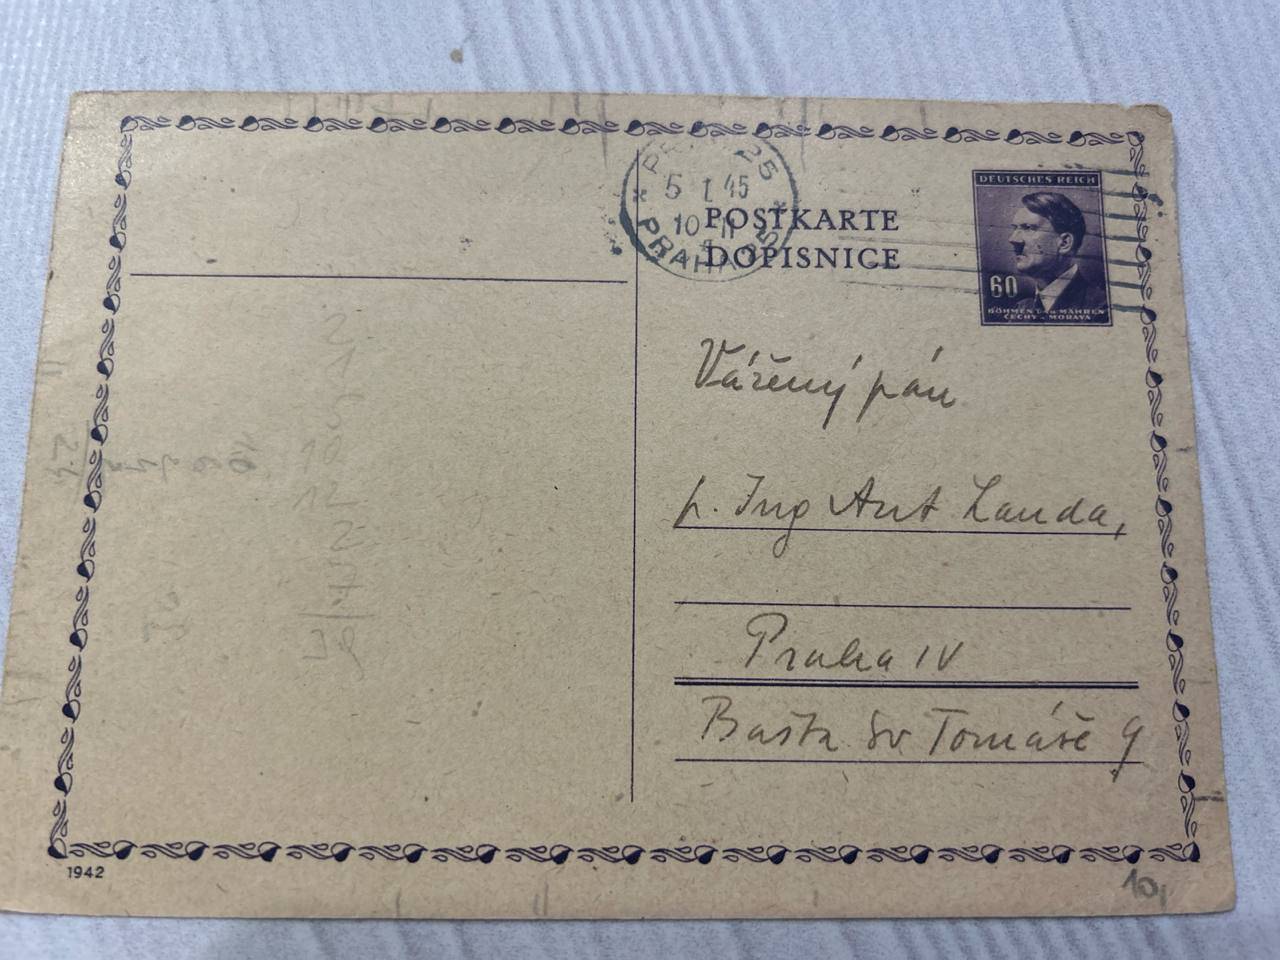 PRAG 25
5 I 45
10
PRAHA 25
POSTKARTE
DOPISNICE
DEUTSCHES REICH
60
BÖHMEN U. MÄHREN
ČECHY - MORAVA
Vážený pán
p. Ing Ant Landa,
Praha IV
Bašta Sv Tomáše 9
1942
10,